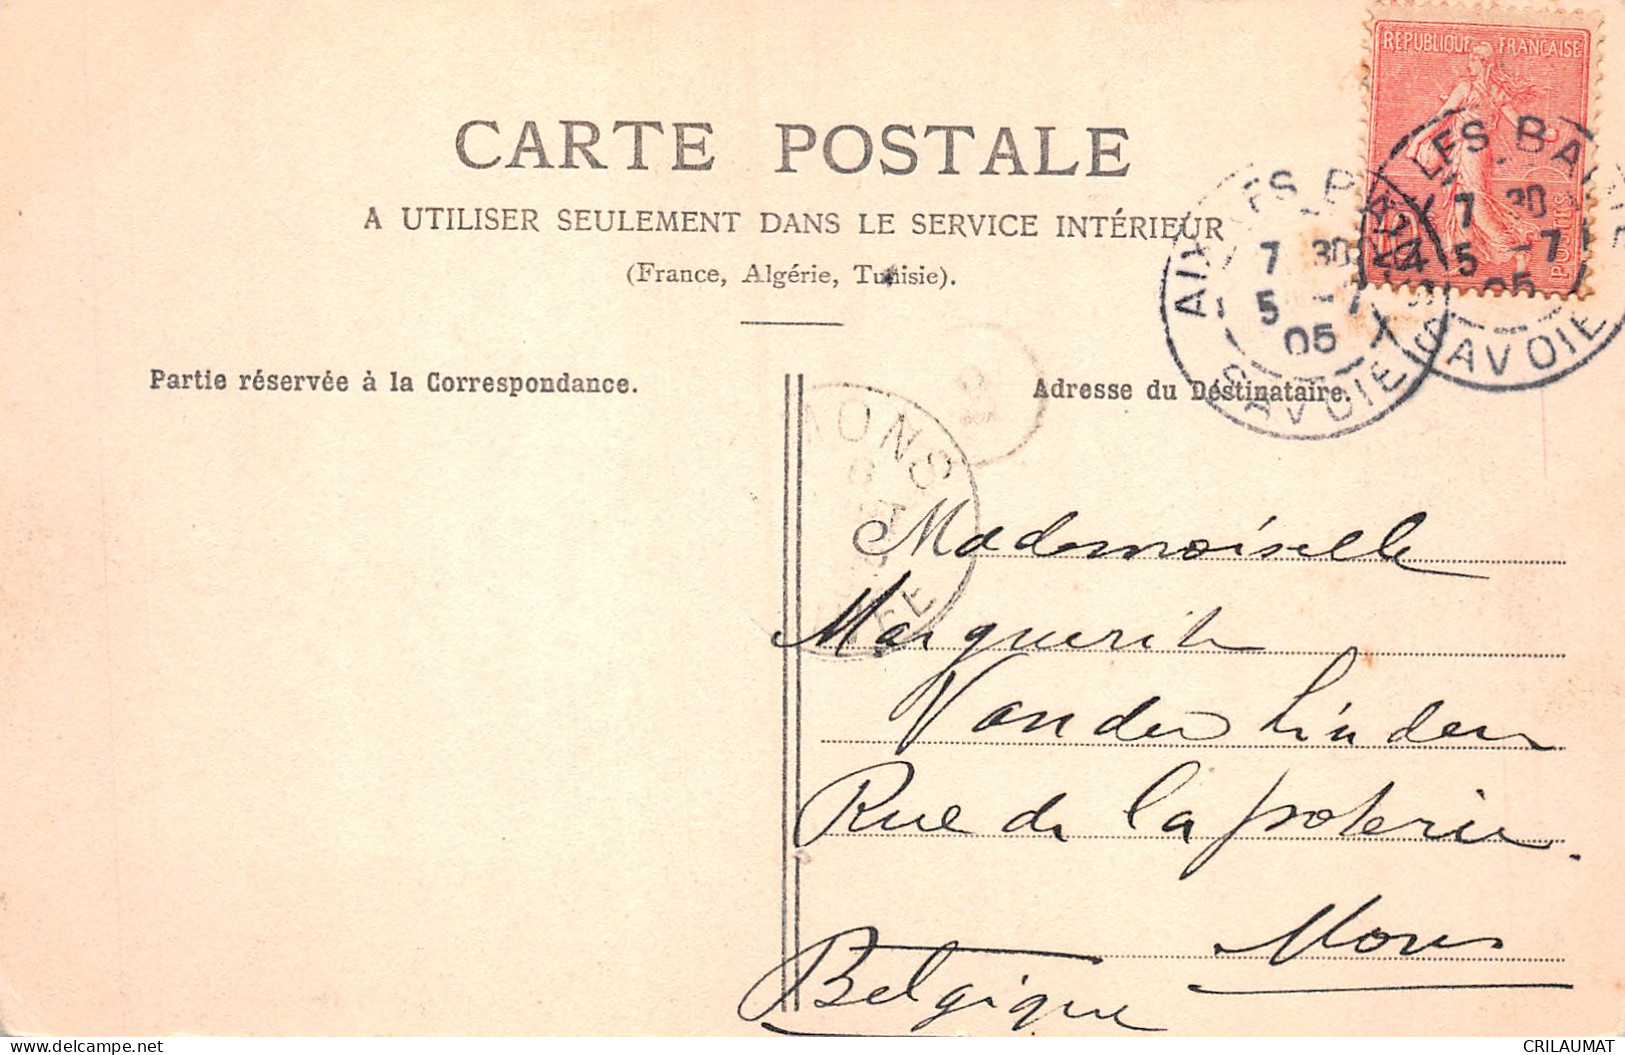 REPUBLIQUE FRANÇAISE
POSTES
CARTE POSTALE
A UTILISER SEULEMENT DANS LE SERVICE INTÉRIEUR
(France, Algérie, Tunisie).
AIX-LES-BAINS
7 30
5 -7
05
SAVOIE
LES-BAINS
7 30
5 -7
05
SAVOIE
Partie réservée à la Correspondance.
Adresse du Destinataire.
MONS
6
Mademoiselle
Marguerite
Vander Linden
Rue de la poterie.
Mons
Belgique
CRILAUMAT
delcampe.net